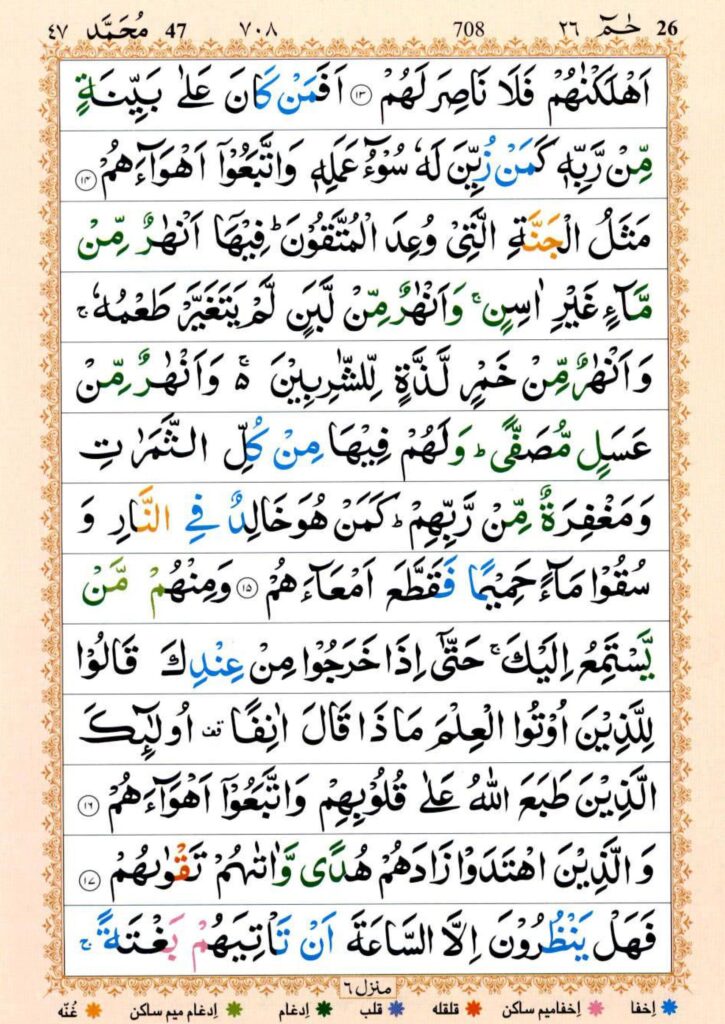 26 حٰمٓ ٢٦ 708 ٧٠٨ 47 مُحَمَّد ٤٧
اَهْلَكْنٰهُمْ فَلَا نَاصِرَ لَهُمْ ﴿۱۳﴾ اَفَمَنْ كَانَ عَلٰى بَيِّنَةٍ
مِّنْ رَّبِّهٖ كَمَنْ زُيِّنَ لَهٗ سُوْٓءُ عَمَلِهٖ وَاتَّبَعُوْٓا اَهْوَآءَهُمْ ﴿۱۴﴾
مَثَلُ الْجَنَّةِ الَّتِىْ وُعِدَ الْمُتَّقُوْنَ ؕ فِيْهَآ اَنْهٰرٌ مِّنْ
مَّآءٍ غَيْرِ اٰسِنٍ ۚ وَاَنْهٰرٌ مِّنْ لَّبَنٍ لَّمْ يَتَغَيَّرْ طَعْمُهٗ ۚ
وَاَنْهٰرٌ مِّنْ خَمْرٍ لَّذَّةٍ لِّلشّٰرِبِيْنَ ۵ۚ وَاَنْهٰرٌ مِّنْ
عَسَلٍ مُّصَفًّى ؕ وَلَهُمْ فِيْهَا مِنْ كُلِّ الثَّمَرٰتِ
وَمَغْفِرَةٌ مِّنْ رَّبِّهِمْ ؕ كَمَنْ هُوَ خَالِدٌ فِى النَّارِ وَ
سُقُوْا مَآءً حَمِيْمًا فَقَطَّعَ اَمْعَآءَهُمْ ﴿۱۵﴾ وَمِنْهُمْ مَّنْ
يَّسْتَمِعُ اِلَيْكَ ۚ حَتّٰٓى اِذَا خَرَجُوْا مِنْ عِنْدِكَ قَالُوْا
لِلَّذِيْنَ اُوْتُوا الْعِلْمَ مَاذَا قَالَ اٰنِفًا قف اُولٰٓئِكَ
الَّذِيْنَ طَبَعَ اللّٰهُ عَلٰى قُلُوْبِهِمْ وَاتَّبَعُوْٓا اَهْوَآءَهُمْ ﴿۱۶﴾
وَالَّذِيْنَ اهْتَدَوْا زَادَهُمْ هُدًى وَّاٰتٰىهُمْ تَقْوٰىهُمْ ﴿۱۷﴾
فَهَلْ يَنْظُرُوْنَ اِلَّا السَّاعَةَ اَنْ تَاْتِيَهُمْ بَغْتَةً ۚ
منزل ٦
اِخفا اِخفامیم ساکن قلقله قلب اِدغام اِدغام میم ساکن غُنّه